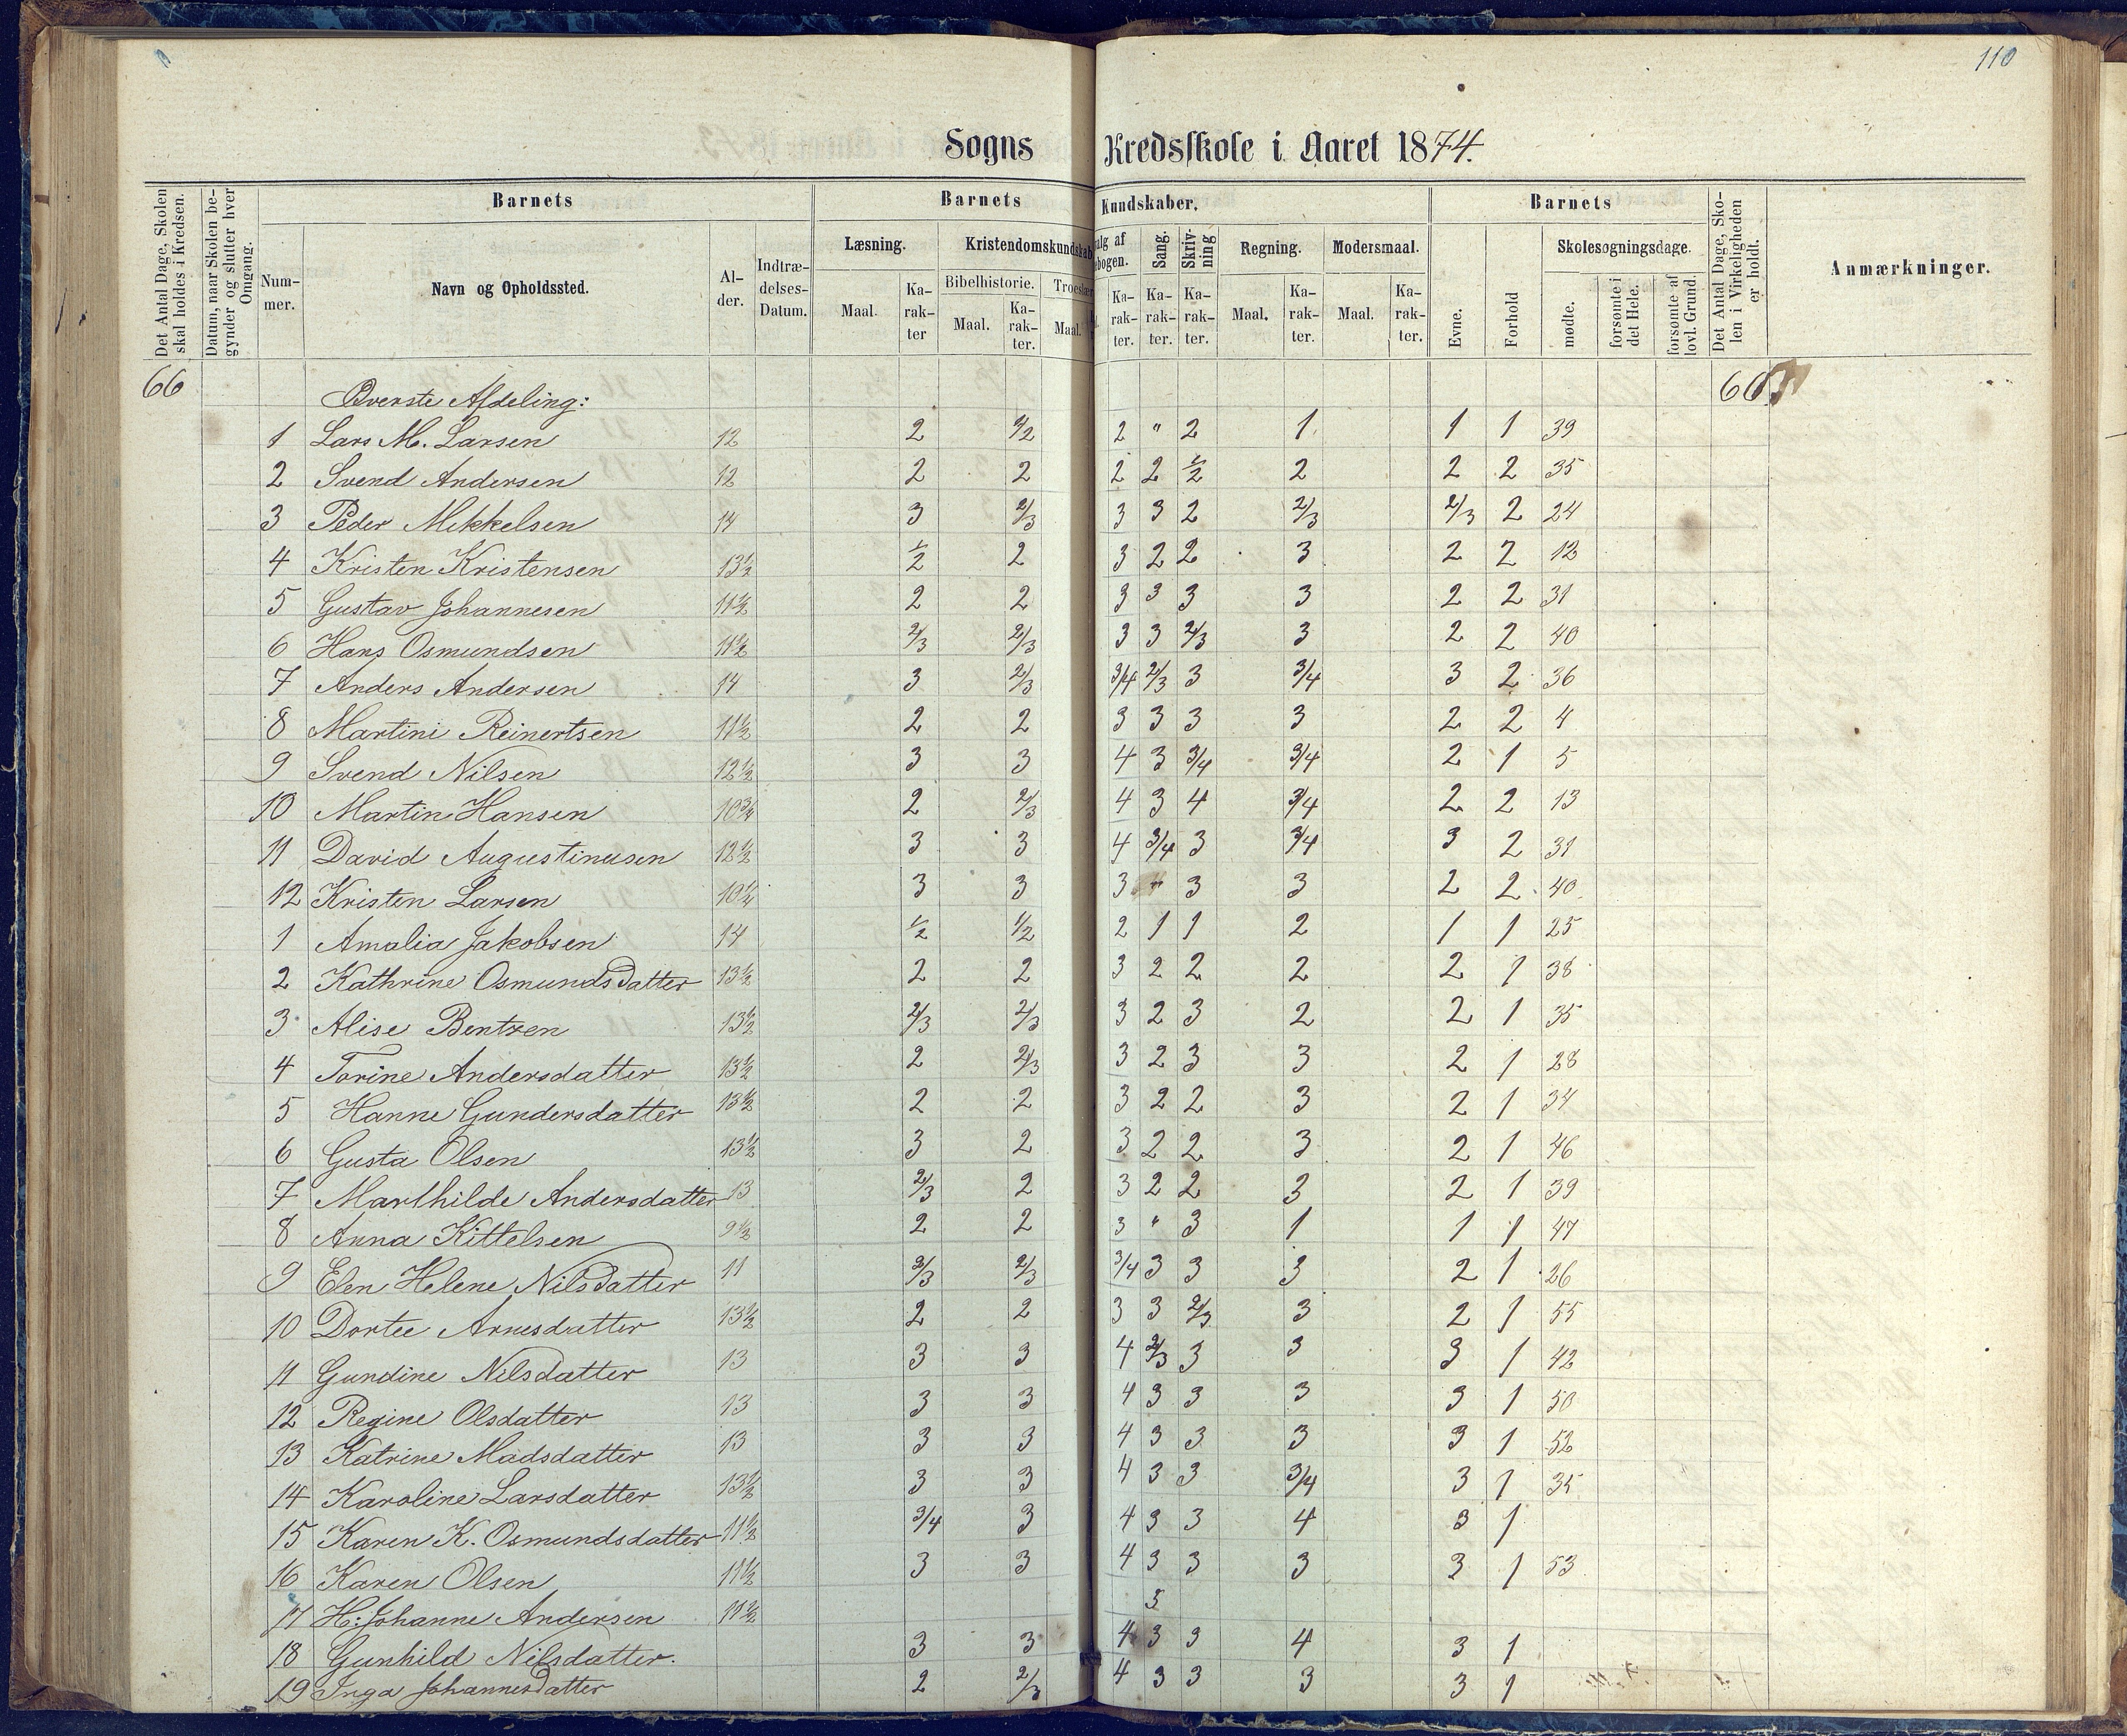 110
Sogns Kredsskole i Aaret 1874.
Det Antal Dage, Skolen skal holdes i Kredsen.
Datum, naar Skolen begynder og slutter hver Omgang.
Barnets
Barnets Kundskaber.
Barnets
Det Antal Dage, Skolen i Virkeligheden er holdt.
Anmærkninger.
Nummer.
Navn og Opholdssted.
Alder.
Indtrædelses-Datum.
Læsning.
Kristendomskundskab
alg af
ebogen.
Sang.
Skrivning
Regning.
Modersmaal.
Evne.
Forhold
Skolesøgningsdage.
Bibelhistorie.
Troeslær
Maal.
Karakter
Maal.
Karakter.
Maal.
Karakter.
Karakter.
Karakter.
Maal.
Karakter.
Maal.
Karakter.
mødte.
forsømte i det Hele.
forsømte af lovl. Grund.
66 Øverste Afdeling: 66
1 Lars M. Larsen 12 2 2 " 2 1 1 1 39
2 Svend Andersen 12 2 2 2 2 1/2 2 2 2 35
3 Peder Mikkelsen 14 3 2/3 3 3 2 2/3 2/3 2 24
4 Kristen Kristensen 13½ 1/2 2 3 2 2 3 2 2 12
5 Gustav Johannesen 11½ 2 2 3 3 3 3 2 2 31
6 Hans Osmundsen 11½ 2/3 2/3 3 3 2/3 3 2 2 40
7 Anders Andersen 14 3 2/3 3/4 2/3 3 3/4 3 2 36
8 Martini Reinertsen 11½ 2 2 3 3 3 3 2 2 4
9 Svend Nilsen 12½ 3 3 4 3 3/4 3/4 2 1 5
10 Martin Hansen 10¾ 2 2/3 4 3 4 3/4 2 2 13
11 David Augustinusen 12½ 3 3 4 3/4 3 3/4 3 2 31
12 Kristen Larsen 10¼ 3 3 3 " 3 3 2 2 40
1 Amalia Jakobsen 14 1/2 1/2 2 1 1 2 1 1 25
2 Kathrine Osmundsdatter 13½ 2 2 3 2 2 2 2 1 38
3 Alise Bentzen 13½ 2/3 2/3 3 2 3 2 2 1 35
4 Torine Andersdatter 13½ 2 2/3 3 2 3 3 2 1 28
5 Hanne Gundersdatter 13½ 2 2 3 2 2 3 2 1 34
6 Gusta Olsen 13½ 3 2 3 2 2 3 2 1 46
7 Marthilde Andersdatter 13 2/3 2 3 2 2 3 2 1 39
8 Anna Kittelsen 9½ 2 2 3 " 3 1 1 1 47
9 Elen Helene Nilsdatter 11 2/3 3/4 3 3 3 2 1 26
10 Dortee Arnesdatter 13½ 2 2 3 3 2/3 3 2 1 55
11 Gundine Nilsdatter 13 3 3 4 2/3 3 3 3 1 42
12 Regine Olsdatter 13 3 3 4 3 3 3 3 1 50
13 Katrine Madsdatter 13 3 3 4 3 3 3 3 1 52
14 Karoline Larsdatter 13½ 3 3 4 3 3 3/4 3 1 35
15 Karen K. Osmundsdatter 11½ 3/4 3 4 3 3 4 3 1
16 Karen Olsen 11½ 3 3 4 3 3 3 3 1 53
17 H: Johanne Andersen 11½ 3
18 Gunhild Nilsdatter. 3 3 4 3 3 4 3 1
19 Inga Johannesdatter 2 2/3 4 3 3 3 3 1